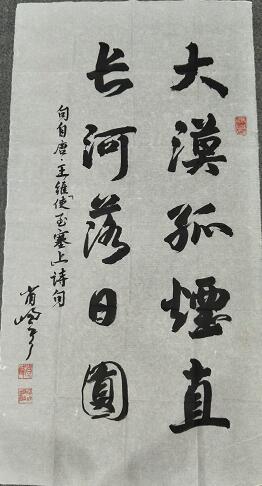 大漠孤煙直
长河落日圓
句自唐·王维《使至塞上》诗句